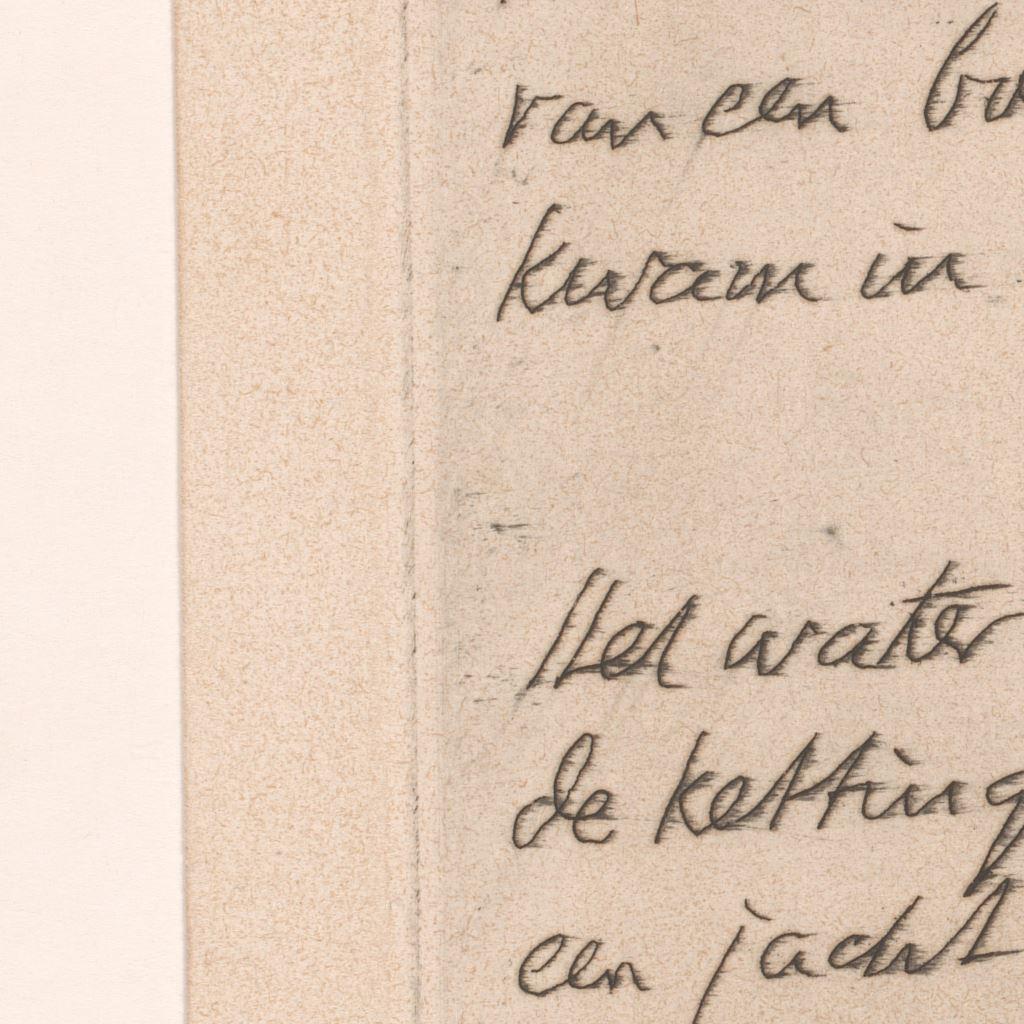 van een
kwam in
Het water
de ketting
een jacht